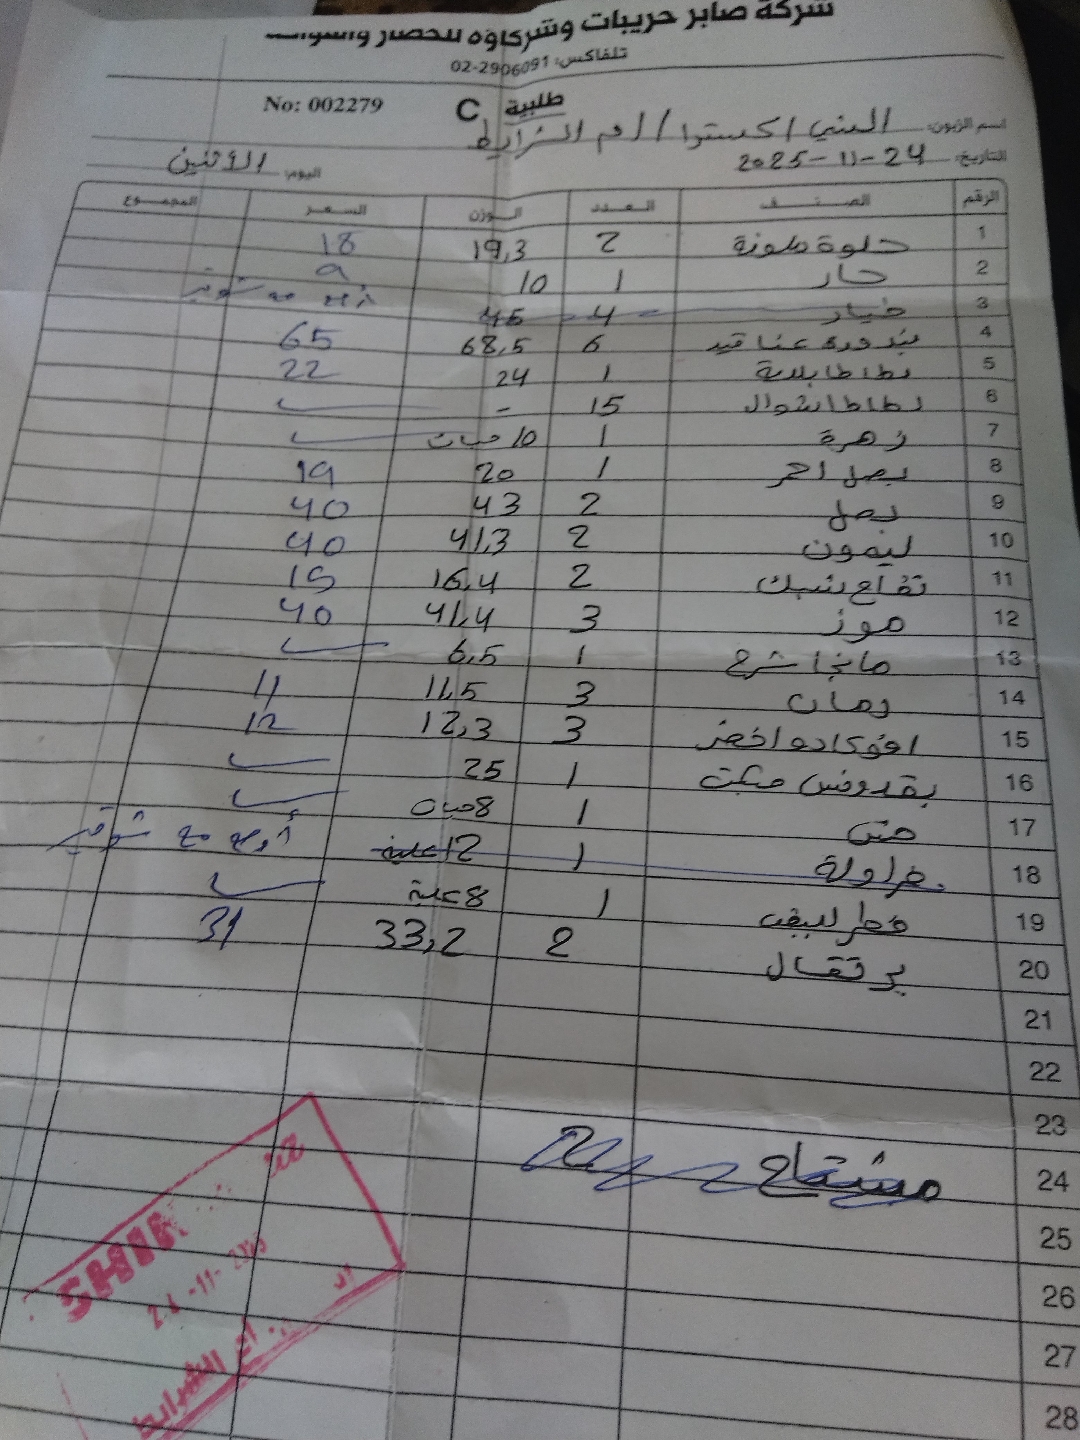 شركة صابر حريبات وشركاؤه للخضار والفواكه
تلفاكس: 02-2906091
No: 002279 C طلبية
اسم الزبون: السني / كستوا / ام الشرايط
التاريخ: 2025-11-24 اليوم: الاثنين
الرقم الصنف العدد الوزن السعر المجموع
1 حلوة ملونة 2 19,3 18
2 حار 1 10 9
3 خيار 4 45 أرجع مع شوقي
4 بندورة عناقيد 6 68,5 65
5 بطاطا بلدية 1 24 22
6 بطاطا شوال 15 -
7 زهرة 1 10 حبات
8 بصل احمر 1 20 19
9 بصل 2 43 40
10 ليمون 2 41,3 40
11 تفاح شبك 2 16,4 15
12 موز 3 41,4 40
13 مانجا شرح 1 6,5
14 رمان 3 11,5 11
15 افوكادو اخضر 3 12,3 12
16 بقدونس مكبت 1 25
17 خس 1 8 حبات
18 فراولة 1 12 علبة أرجع مع شوقي
19 فطر للبيف 1 8 علبة
20 برتقال 2 33,2 31
21
22
23
24 مشتاح
25
26
27
28
24-11-2025
ام الشرايط